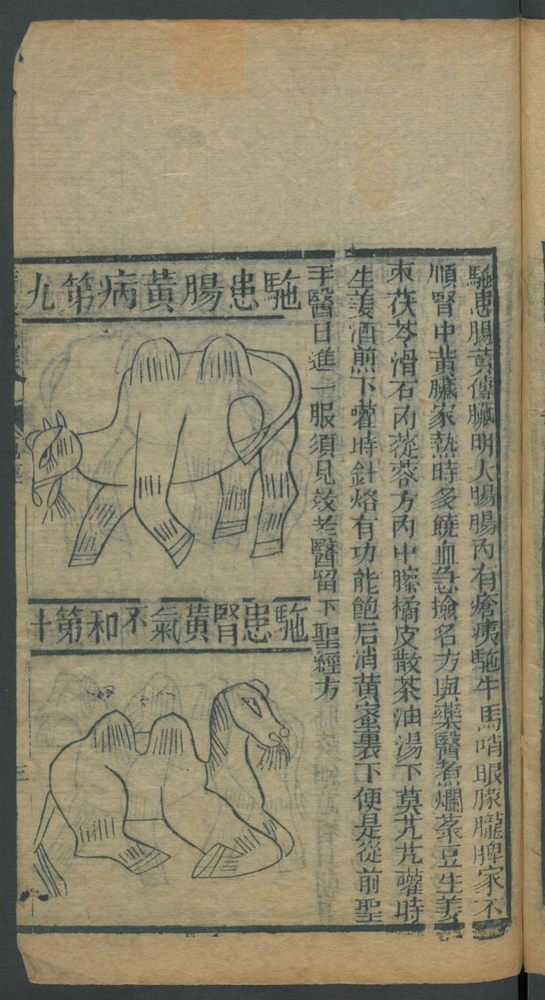 駞患腸黃傳臟明大腸腸內有瘡痍駞牛馬哨眼朦朧脾家不
順腎中黃臟家熱時多饒血急搶名方與藥醫煮爛菉豆生姜
朿茯苓滑石肉蓯蓉方內中朦橘皮散茶油湯下莫艽芁嚾時
生姜酒煎下嚾時針烙有功能飽后消黃蜜裏下便是從前聖
手醫日進一服須見效老醫留下聖經方
駞患腸黃病第九
駞患腎黃氣不和第十
三